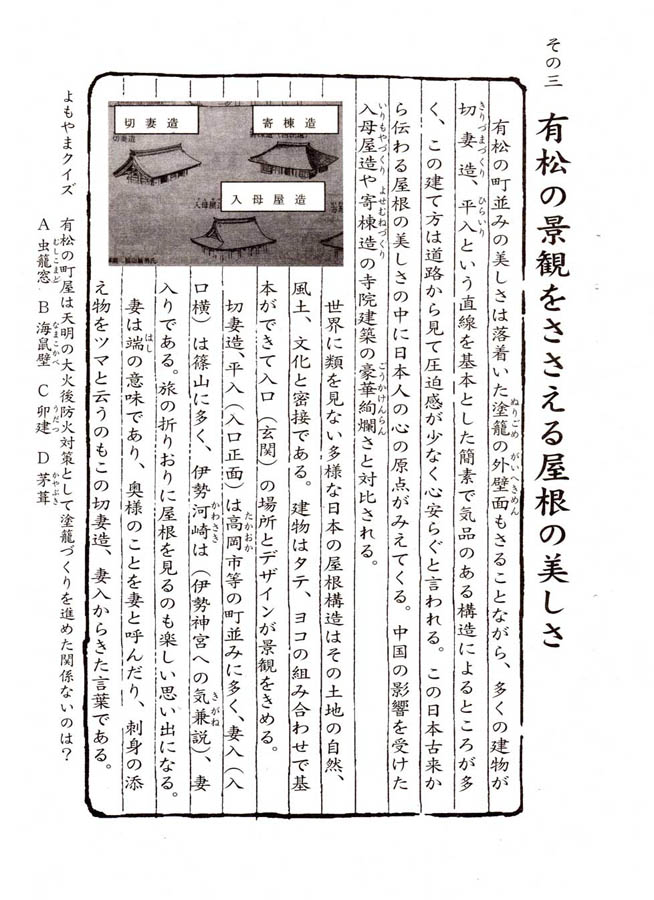 その三
有松の景観をささえる屋根の美しさ
有松の町並みの美しさは落着いた塗籠の外壁面もさることながら、多くの建物が
切妻造、平入という直線を基本とした簡素で気品のある構造によるところが多
く、この建て方は道路から見て圧迫感が少なく心安らぐと言われる。この日本古来か
ら伝わる屋根の美しさの中に日本人の心の原点がみえてくる。中国の影響を受けた
入母屋造や寄棟造の寺院建築の豪華絢爛さと対比される。
切妻造
寄棟造
入母屋造
世界に類を見ない多様な日本の屋根構造はその土地の自然、
風土、文化と密接である。建物はタテ、ヨコの組み合わせで基
本ができて入口（玄関）の場所とデザインが景観をきめる。
切妻造、平入（入口正面）は高岡市等の町並みに多く、妻入（入
口横）は篠山に多く、伊勢河崎は（伊勢神宮への気兼説）、妻
入りである。旅の折りおりに屋根を見るのも楽しい思い出になる。
妻は端の意味であり、奥様のことを妻と呼んだり、刺身の添
え物をツマと云うのもこの切妻造、妻入からきた言葉である。
よもやまクイズ 有松の町屋は天明の大火後防火対策として塗籠づくりを進めた関係ないのは？
A 虫籠窓 B 海鼠壁 C 卯建 D 茅葺